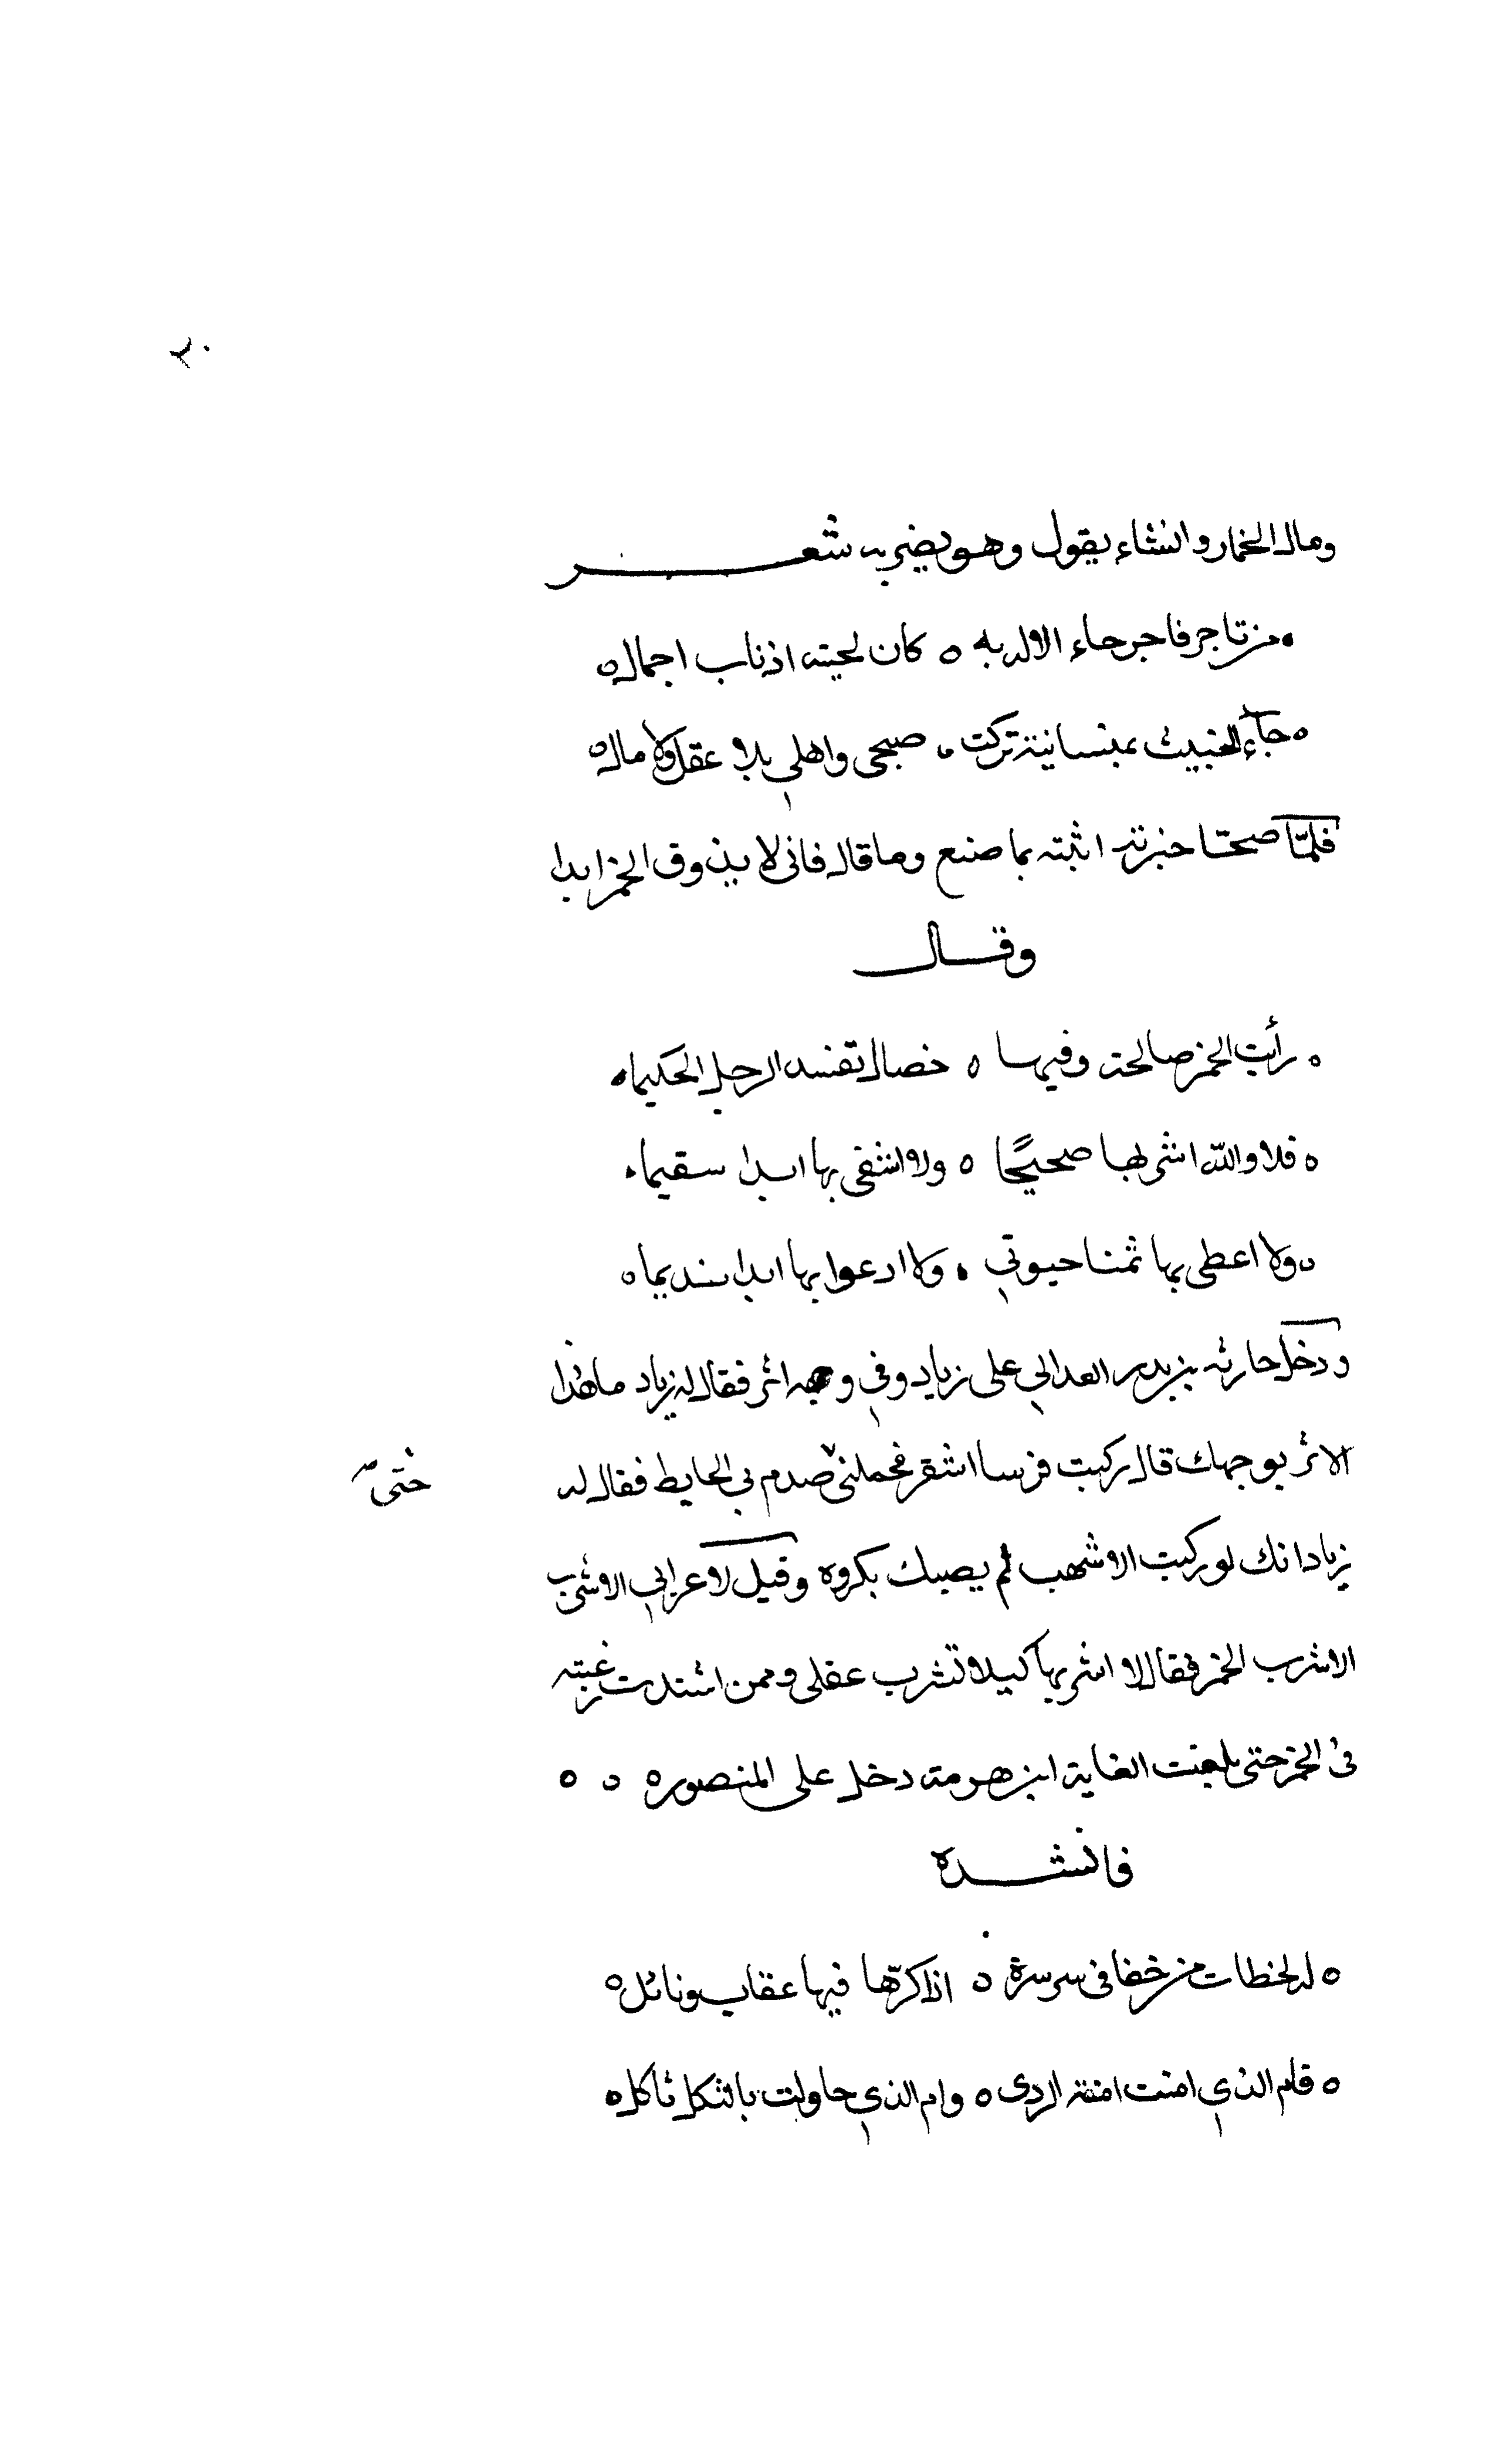 ٢٠
ومال الخمار وانشاء يقول وهو يضربه شعر
من تاجر فاجر جاء الاله به ه كان لحيته اذناب اجمال ه
ه جآء الخبيث ببنسانية تركت ه صبحى واهلي بلا عقل ولا مال ه
فلمّا صحا خبرته ابنته بما صنع وما قال فانى لا يذوق الخمر ابدا
وقال
ه رأيت الخمر صالحة وفيها ه خصال تفسد الرجل الحكيما ه
ه فلا والله اشربها صحيحًا ه ولا اشفى بها ابدا سقيما ه
ه ولا اعطى بها ثمنا حيوتي ه ولا ادعوا بها ابدا نديما ه
ودخل حارثه بن بدر العدالي على زياد وفي وجهه اثر فقال له زياد ما هذا
الاثر بوجهك قال ركبت فرسا اشقر فحملنى صدم بي الحايط فقال له
حتى صح
زياد انك لو ركبت الاشهب لم يصبك مكروه وقيل لاعرابي الا تشرب
الاشرب الخمر فقال لا اشربها كيلا تشرب عقلى وممن اشتدت رغبته
فى الخمر حتى بلغت الغاية ابن هرمة دخل على المنصور ه ه ه
فانشده
ه له لحظات من خفا فى سرسرة ه اذا كرّها فيها عقاب ونائل ه
ه فام الذي امنت امنة الردى ه وام الذي حاولت بالثكل ثاكل ه